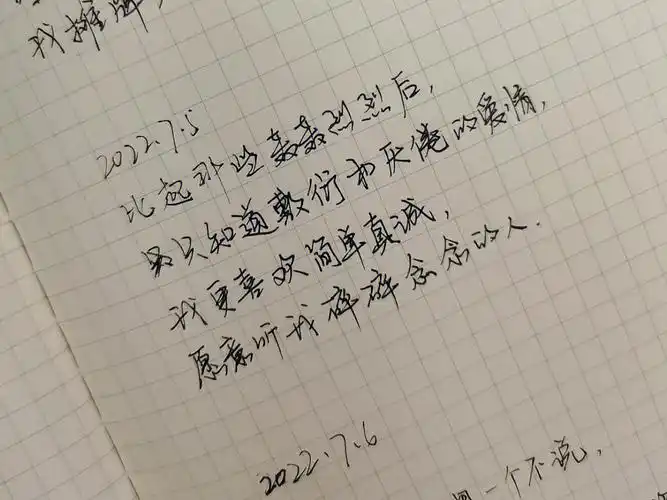 我摊牌
2022.7.5
比起那些轰轰烈烈后,
只知道敷衍和厌倦的爱情,
我更喜欢简单真诚,
愿意听我碎碎念念的人.
2022.7.6
一个不说,